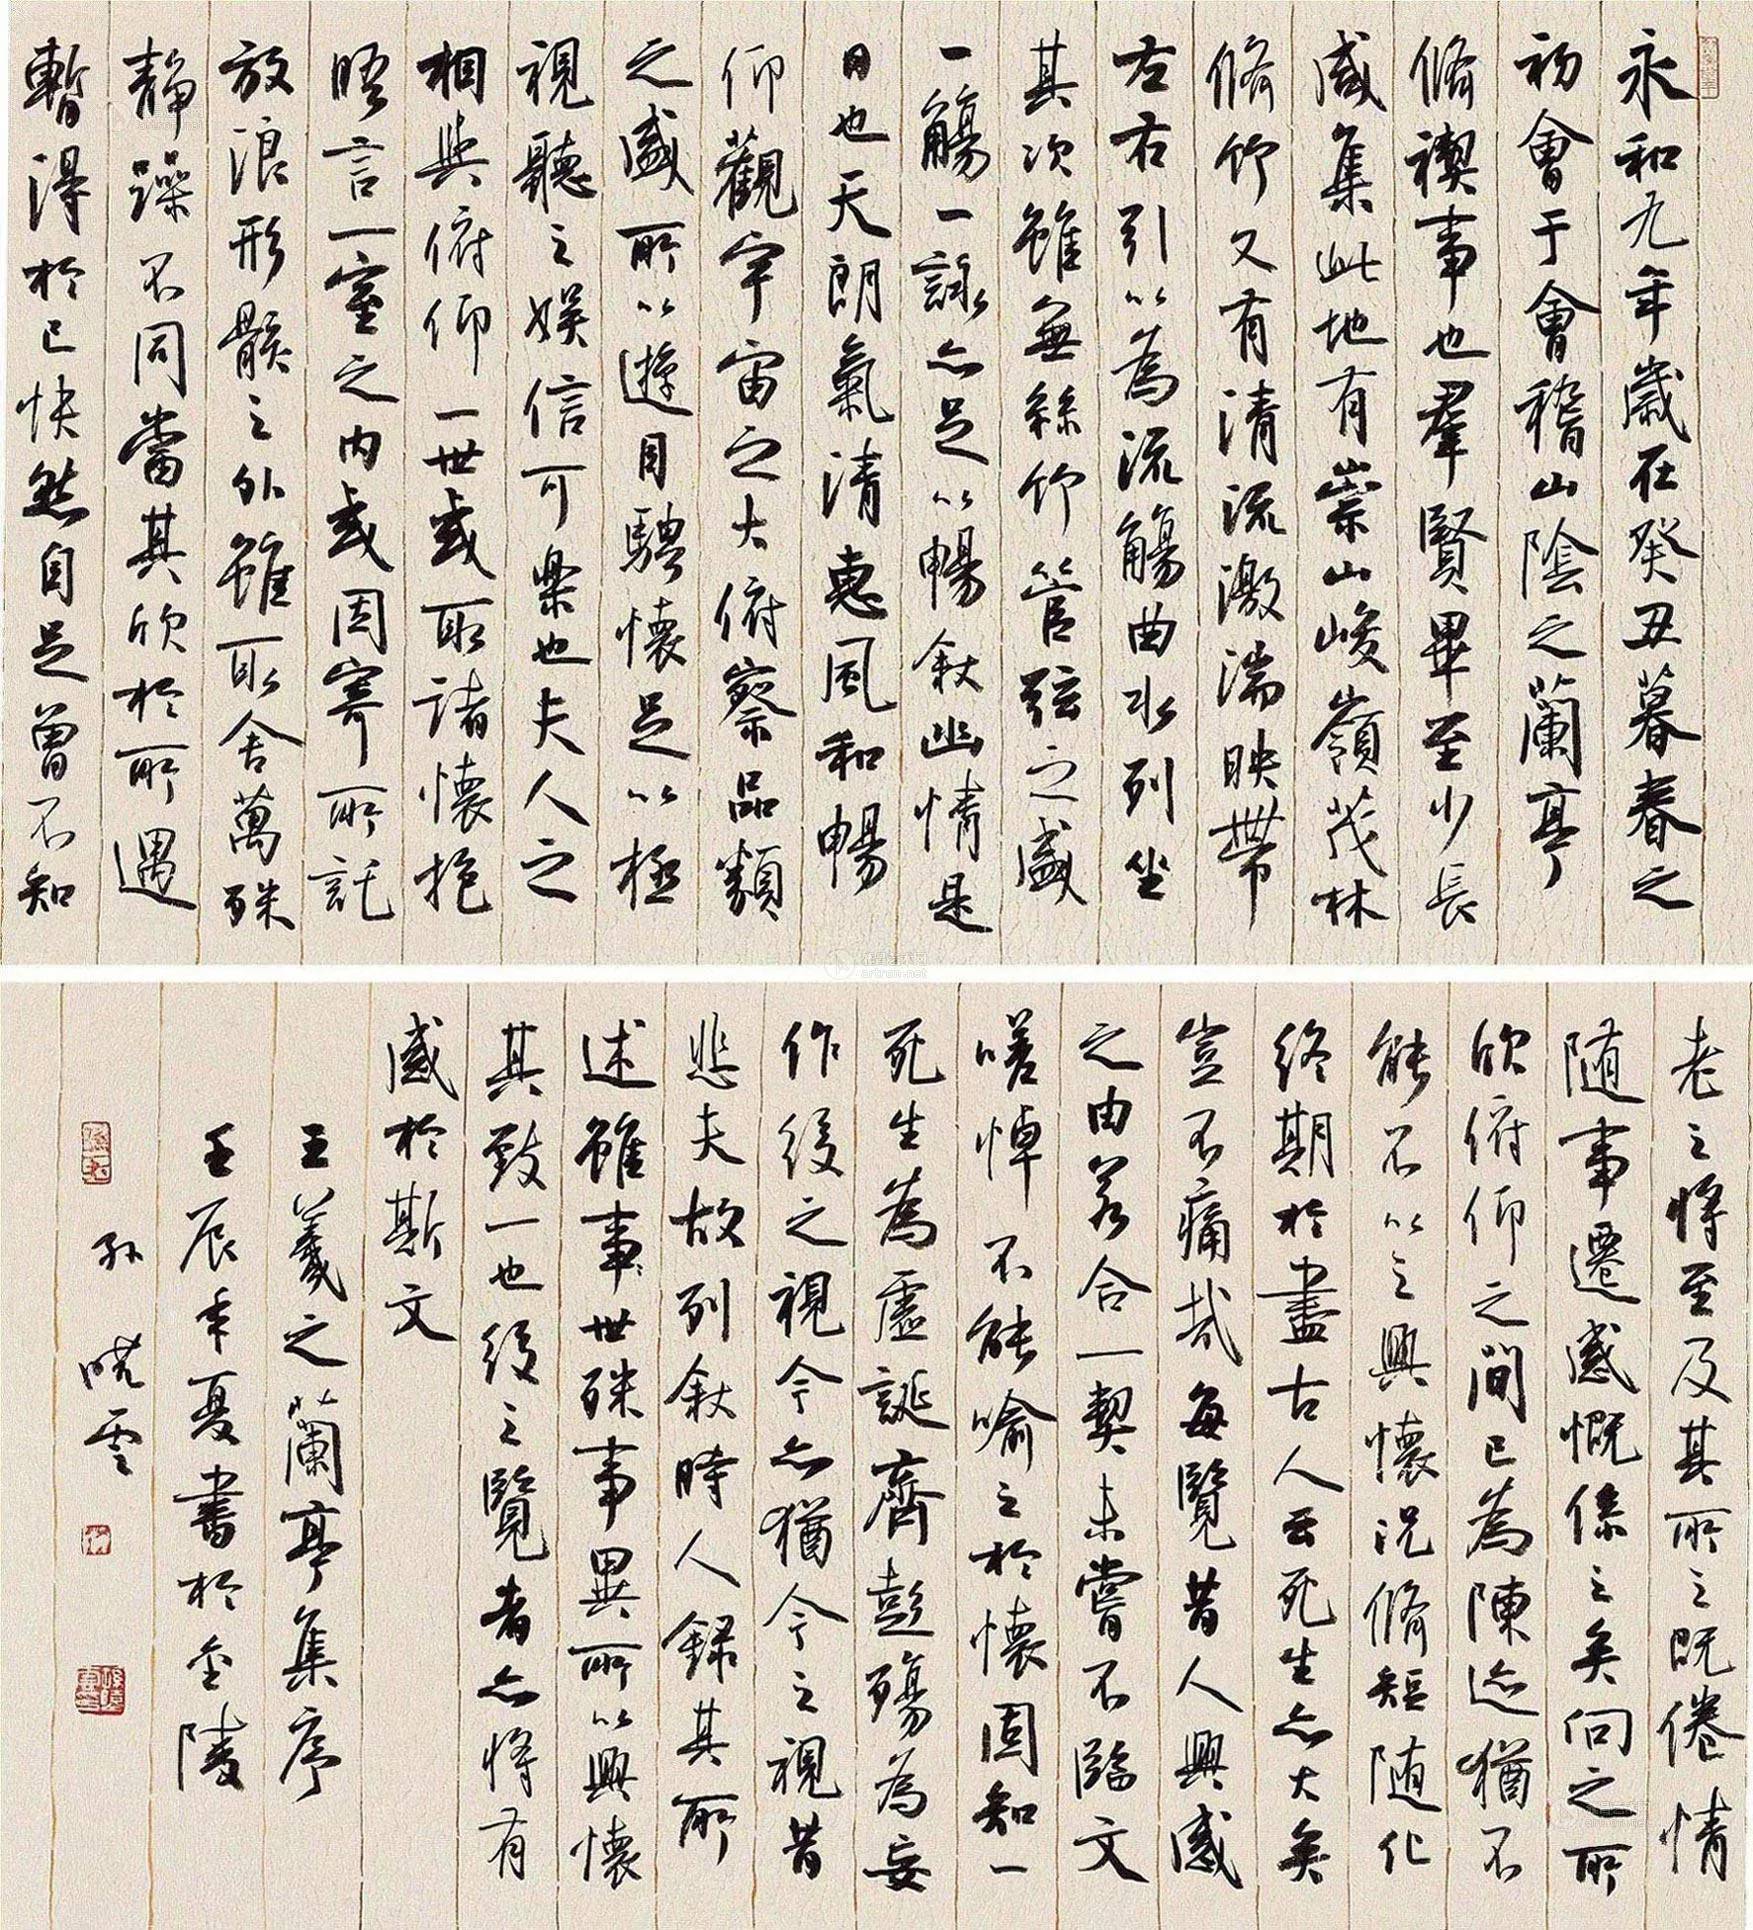 永和九年歲在癸丑暮春之
初會于會稽山陰之蘭亭
脩禊事也羣賢畢至少長
咸集此地有崇山峻嶺茂林
脩竹又有清流激湍映帶
左右引以為流觴曲水列坐
其次雖無絲竹管弦之盛
一觴一詠亦足以暢敘幽情是
日也天朗氣清惠風和暢
仰觀宇宙之大俯察品類
之盛所以遊目騁懷足以極
視聽之娛信可樂也夫人之
相與俯仰一世或取諸懷抱
晤言一室之內或因寄所託
放浪形骸之外雖取舍萬殊
靜躁不同當其欣於所遇
暫得於己快然自足曾不知
老之將至及其所之既倦情
隨事遷感慨係之矣向之所
欣俯仰之間已為陳迹猶不
能不以之興懷況脩短隨化
終期於盡古人云死生亦大矣
豈不痛哉每覽昔人興感
之由若合一契未嘗不臨文
嗟悼不能喻之於懷固知一
死生為虛誕齊彭殤為妄
作後之視今亦猶今之視昔
悲夫故列敘時人錄其所
述雖事世殊事異所以興懷
其致一也後之覽者亦將有
感於斯文
王羲之蘭亭集序
壬辰年夏書於金陵
孫曉雲
artron.net